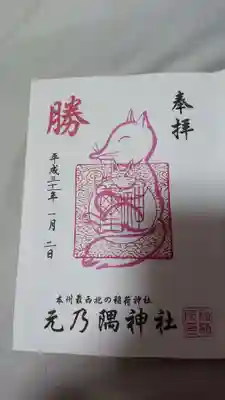 奉拝
勝
平成三十一年 一月 二日
本州最西北の稲荷神社
元乃隅神社